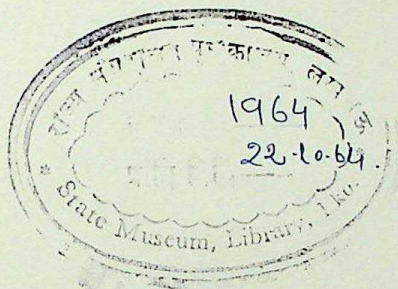 राज्य संग्रहालय पुस्तकालय, लखनऊ
1964
22-10-64.
* State Museum, Library, Lko. *